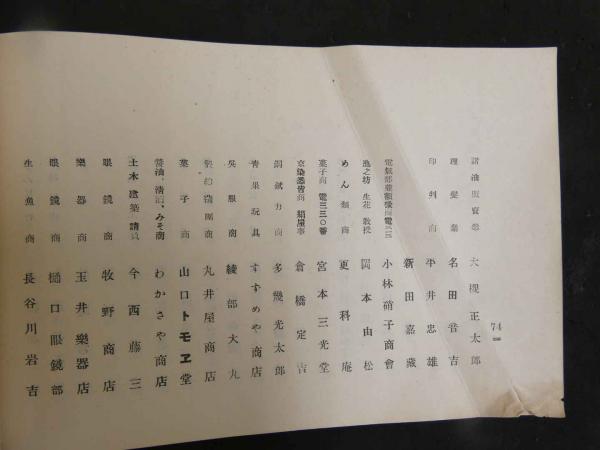 74
諸油販賣業 大槻正太郎
理髮業 名田音吉
印刷商 平井忠雄
新田嘉藏
小林硝子商會
池之坊 生花 敎授 岡本由松
めん類商 更科庵
菓子商 電三三〇番 宮本三光堂
京染悉皆商 絹屋事 倉橋定吉
銅鉄力商 多幾光太郎
靑果玩具 すずめや商店
吳服商 綾部大丸
丸井屋商店
菓子商 山口トモヱ堂
醬油、淸酒、みそ商 わかさや商店
土木建築請負 今西藤三
眼鏡商 牧野商店
樂器商 玉井樂器店
眼鏡商 樋口眼鏡部
生魚商 長谷川岩吉